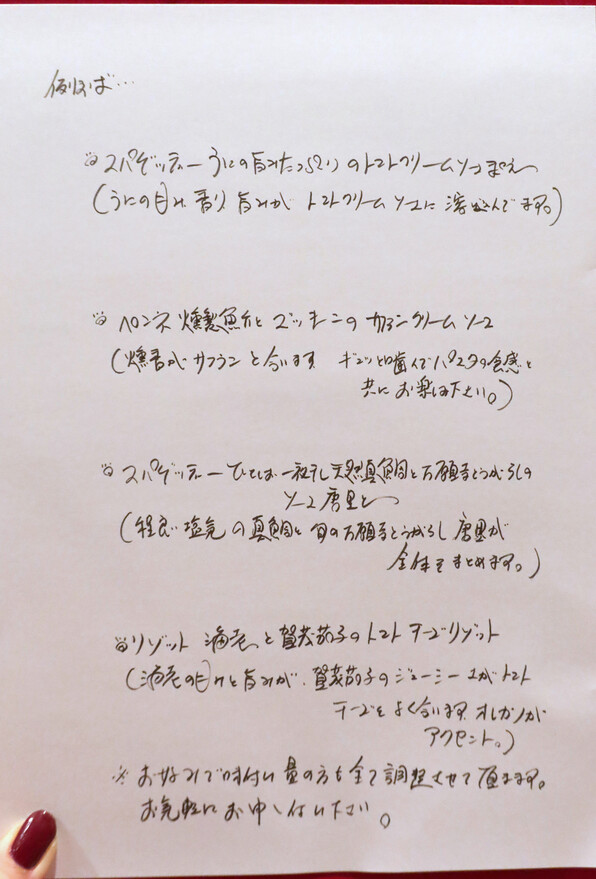 例えば…
スパゲッティー うにの旨みたっぷりのトマトクリームソースまぜて
(うにの甘み 香り 旨みが トマトクリームソースに 溶け込んでます。)
ペンネ 燻製魚介と ズッキーニの サフランクリームソース
(燻香が サフランと合います ギュッと噛んで パスタの食感と
共に お楽しみ下さい。)
スパゲッティー ひとしお 一夜干し 天然真鯛と万願寺とうがらしの
ソース 唐墨と
(程良い塩気の真鯛と 旬の万願寺とうがらし 唐墨が
全体をまとめます。)
リゾット 海老と賀茂茄子のトマトチーズリゾット
(海老の甘みと旨みが、賀茂茄子のジューシーさがトマト
チーズとよく合います オレガノが
アクセント。)
※ お好みで味付け 量の方も全て調整させて頂きます。
お気軽にお申し付け下さい。